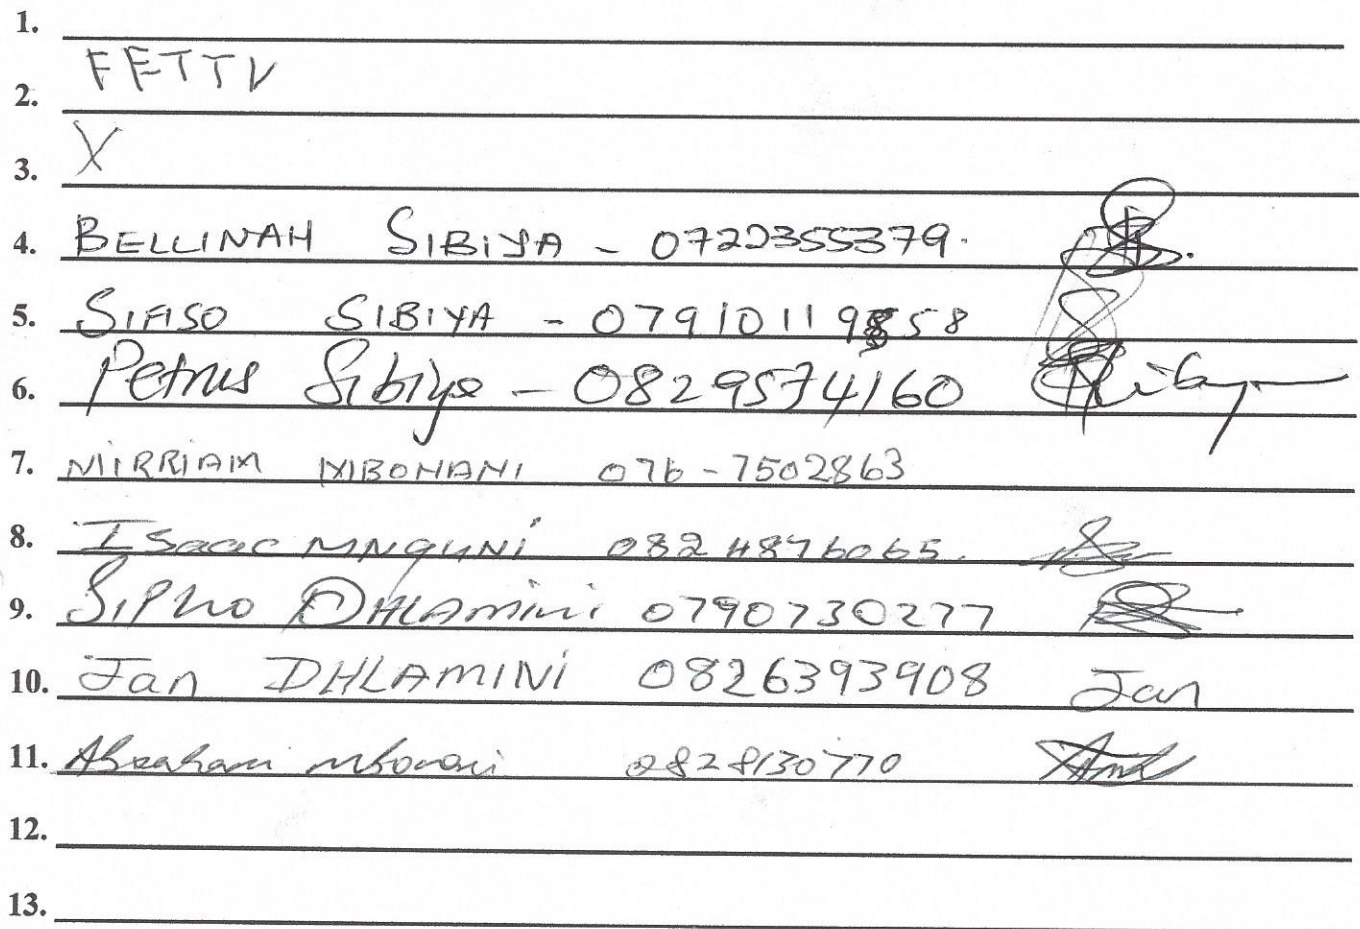 1.
2. FETTV
3. X
4. BELLINAH SIBIYA - 0722355379.
5. SIFISO SIBIYA - 07910119858
6. Petrus Sibiya - 0829574160
7. MIRRIAM MBONANI 076-7502863
8. Isaac MNGUNI 0824876065.
9. SIPHO DHLAMINI 0790730277
10. Jan DHLAMINI 0826393908 Jan
11. Abraham mbonani 0828130770
12.
13.